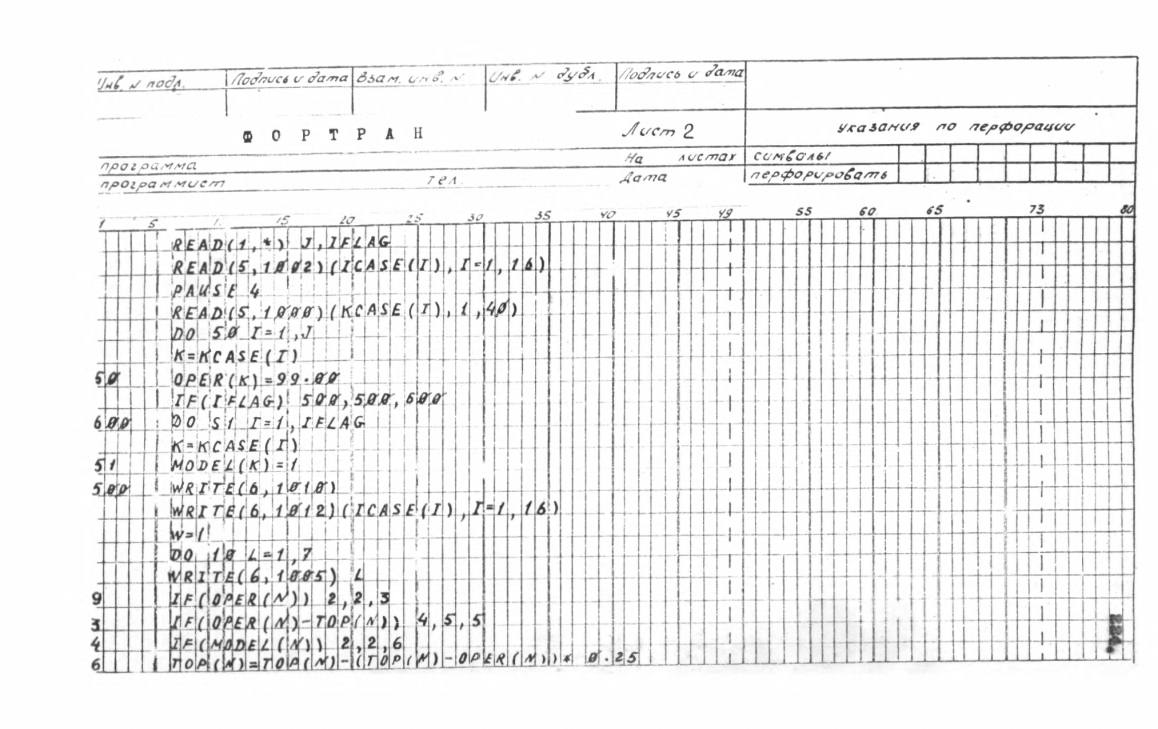 Инв. N подл. Подпись и дата Взам. инв. N Инв. N дубл. Подпись и дата
ФОРТРАН Лист 2 указания по перфорации
программа На листах символы
программист тел. Дата перфорировать
1 5 1. 15 20 25 30 35 40 45 49 55 60 65 73 80
READ(1,*) J,IFLAG
READ(5,1002)(ICASE(I),I=1,16)
PAUSE 4
READ(5,1000)(KCASE(I),1,40)
DO 50 I=1,J
K=KCASE(I)
50 OPER(K)=99.00
IF(IFLAG) 500,500,600
600 DO 51 I=1,IFLAG
K=KCASE(I)
51 MODEL(K)=1
500 WRITE(6,1010)
WRITE(6,1012)(ICASE(I),I=1,16)
W=1
DO 10 L=1,7
WRITE(6,1005) L
9 IF(OPER(N)) 2,2,3
3 IF(OPER(N)-TOP(N)) 4,5,5
4 IF(MODEL(N)) 2,2,6
6 TOP(N)=TOP(N)-(TOP(N)-OPER(N))* 0.25